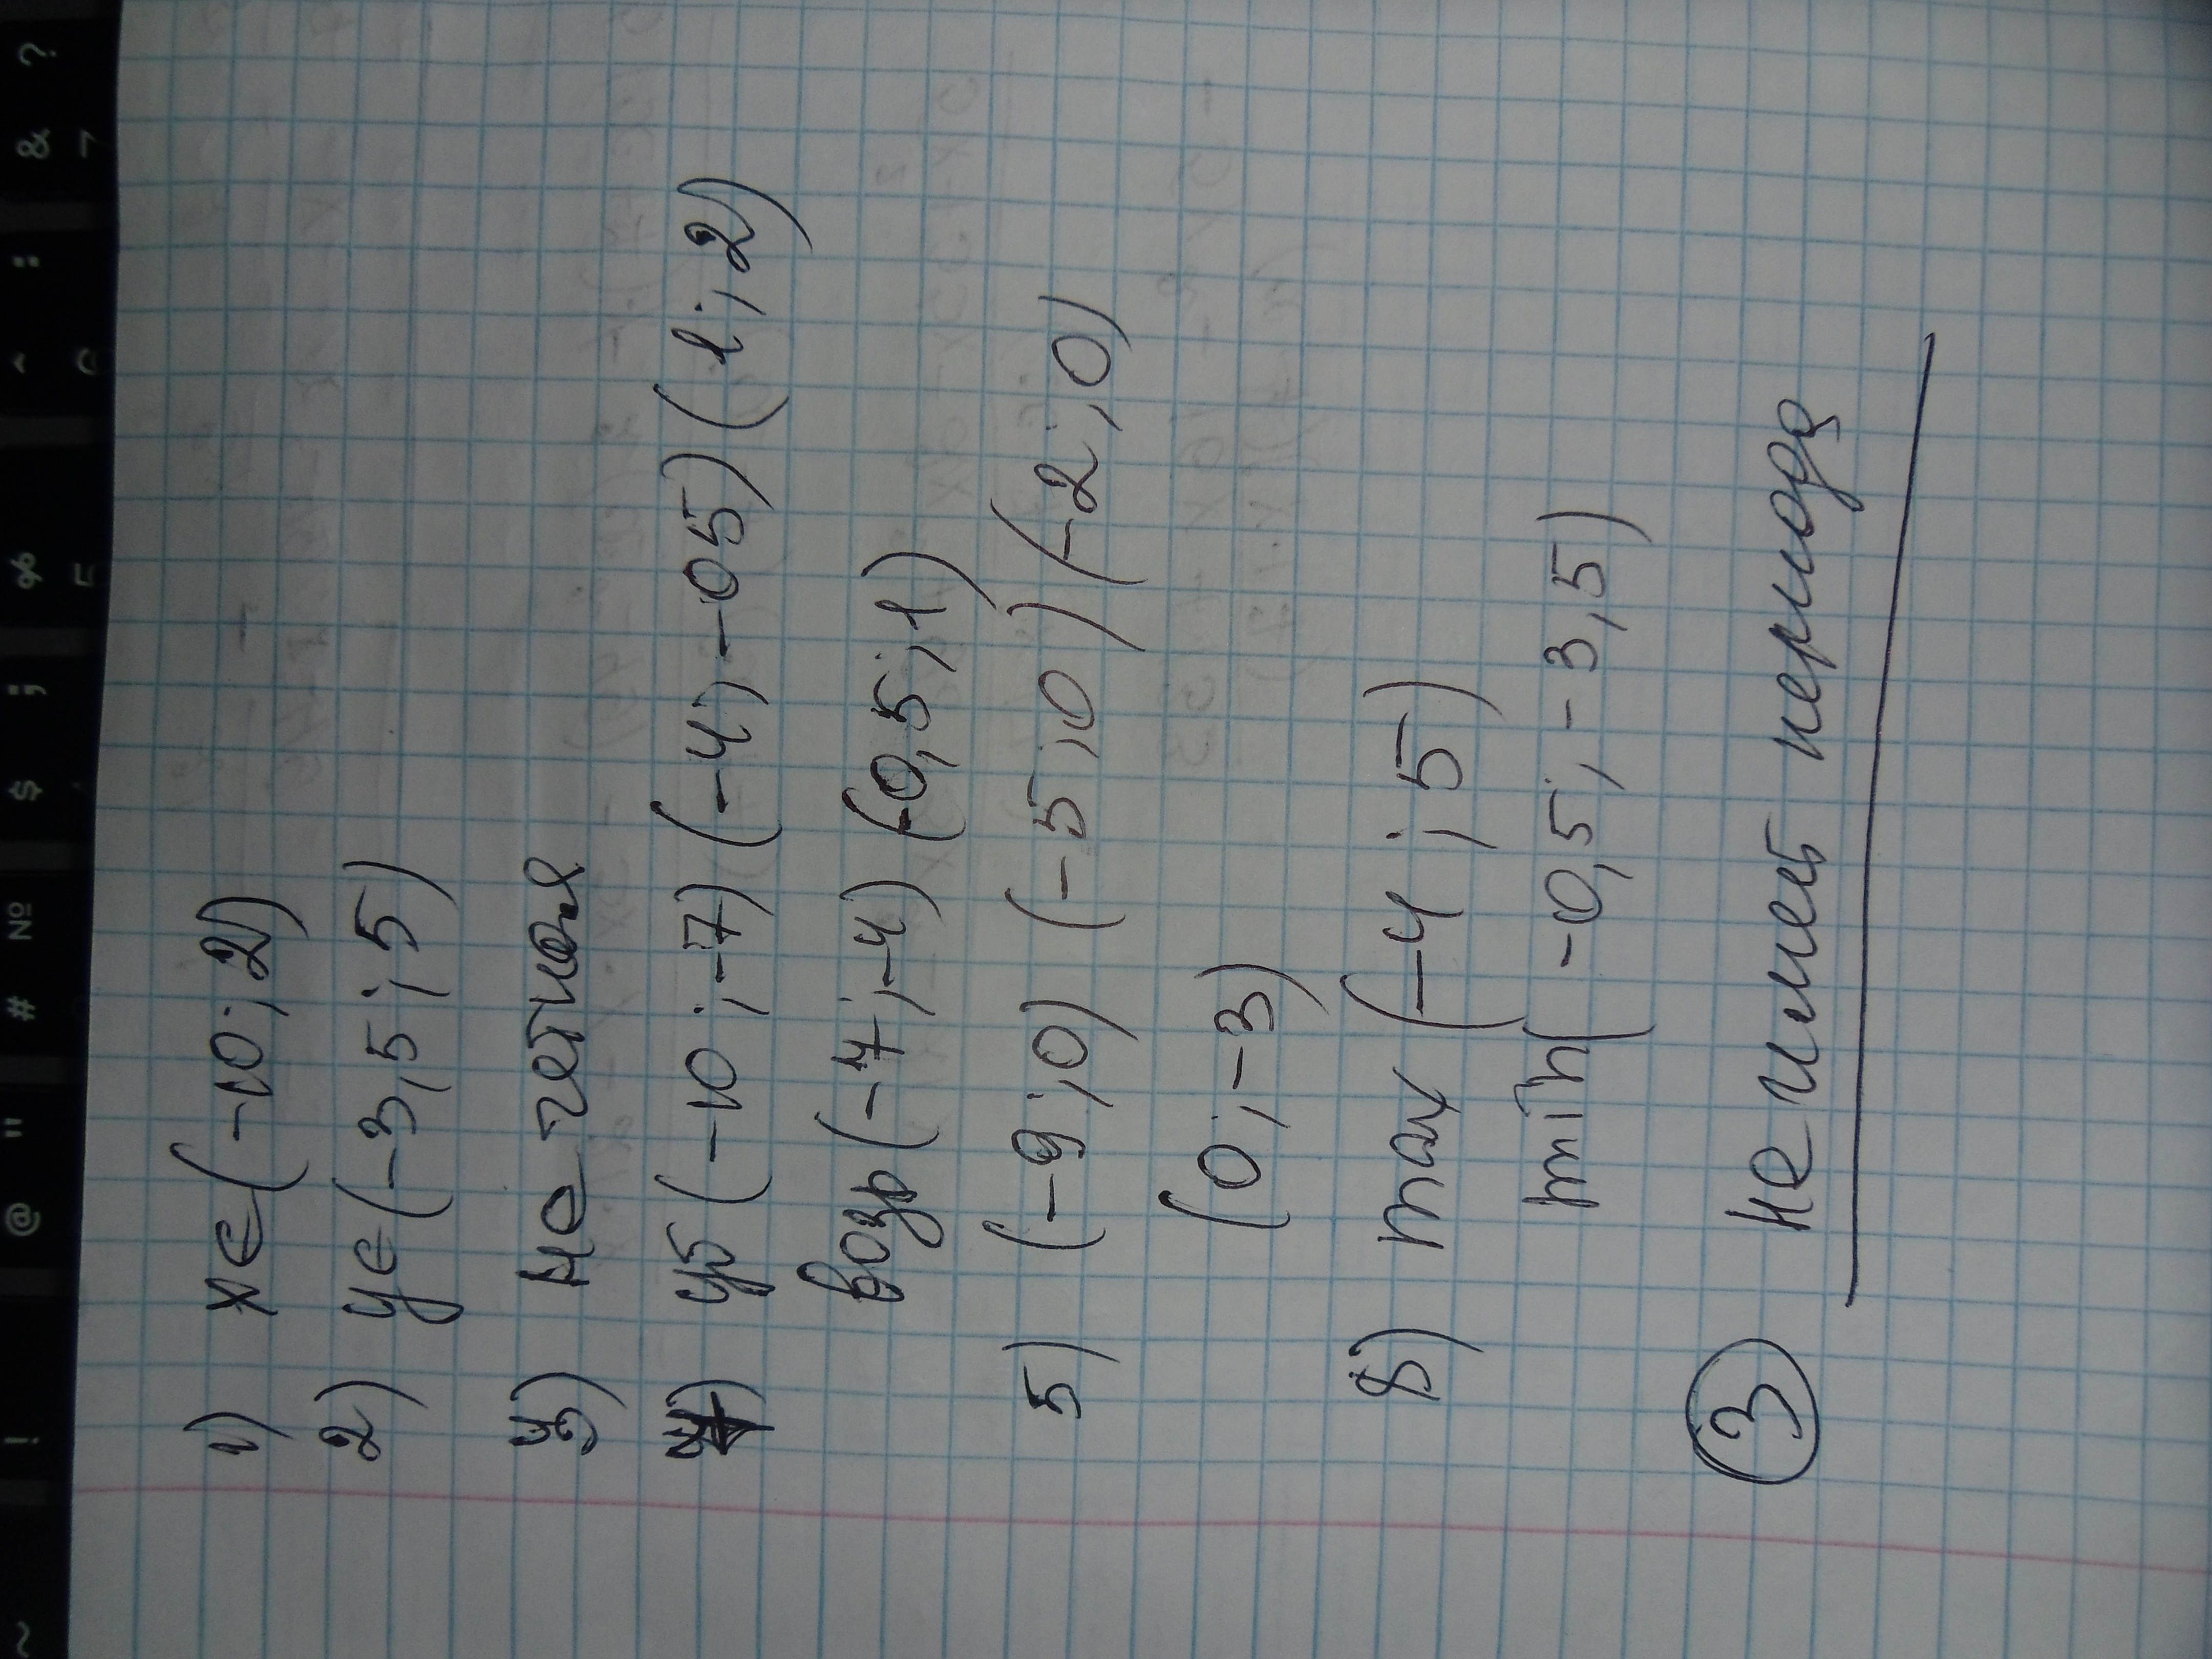 1) x∈(-10;2)
2) y∈(-3,5;5)
3) не четная
4) уб(-10;-7)(-4;-05)(1;2)
возр(-7;-4)(-0,5;1)
5) (-9;0)(-5;0)(-2;0)
(0;-3)
8) max(-4;5)
min(-0,5;-3,5)
③ не имеет периода
~ ! @ " # № $ ; % 5 ^ : 6 & 7 ?